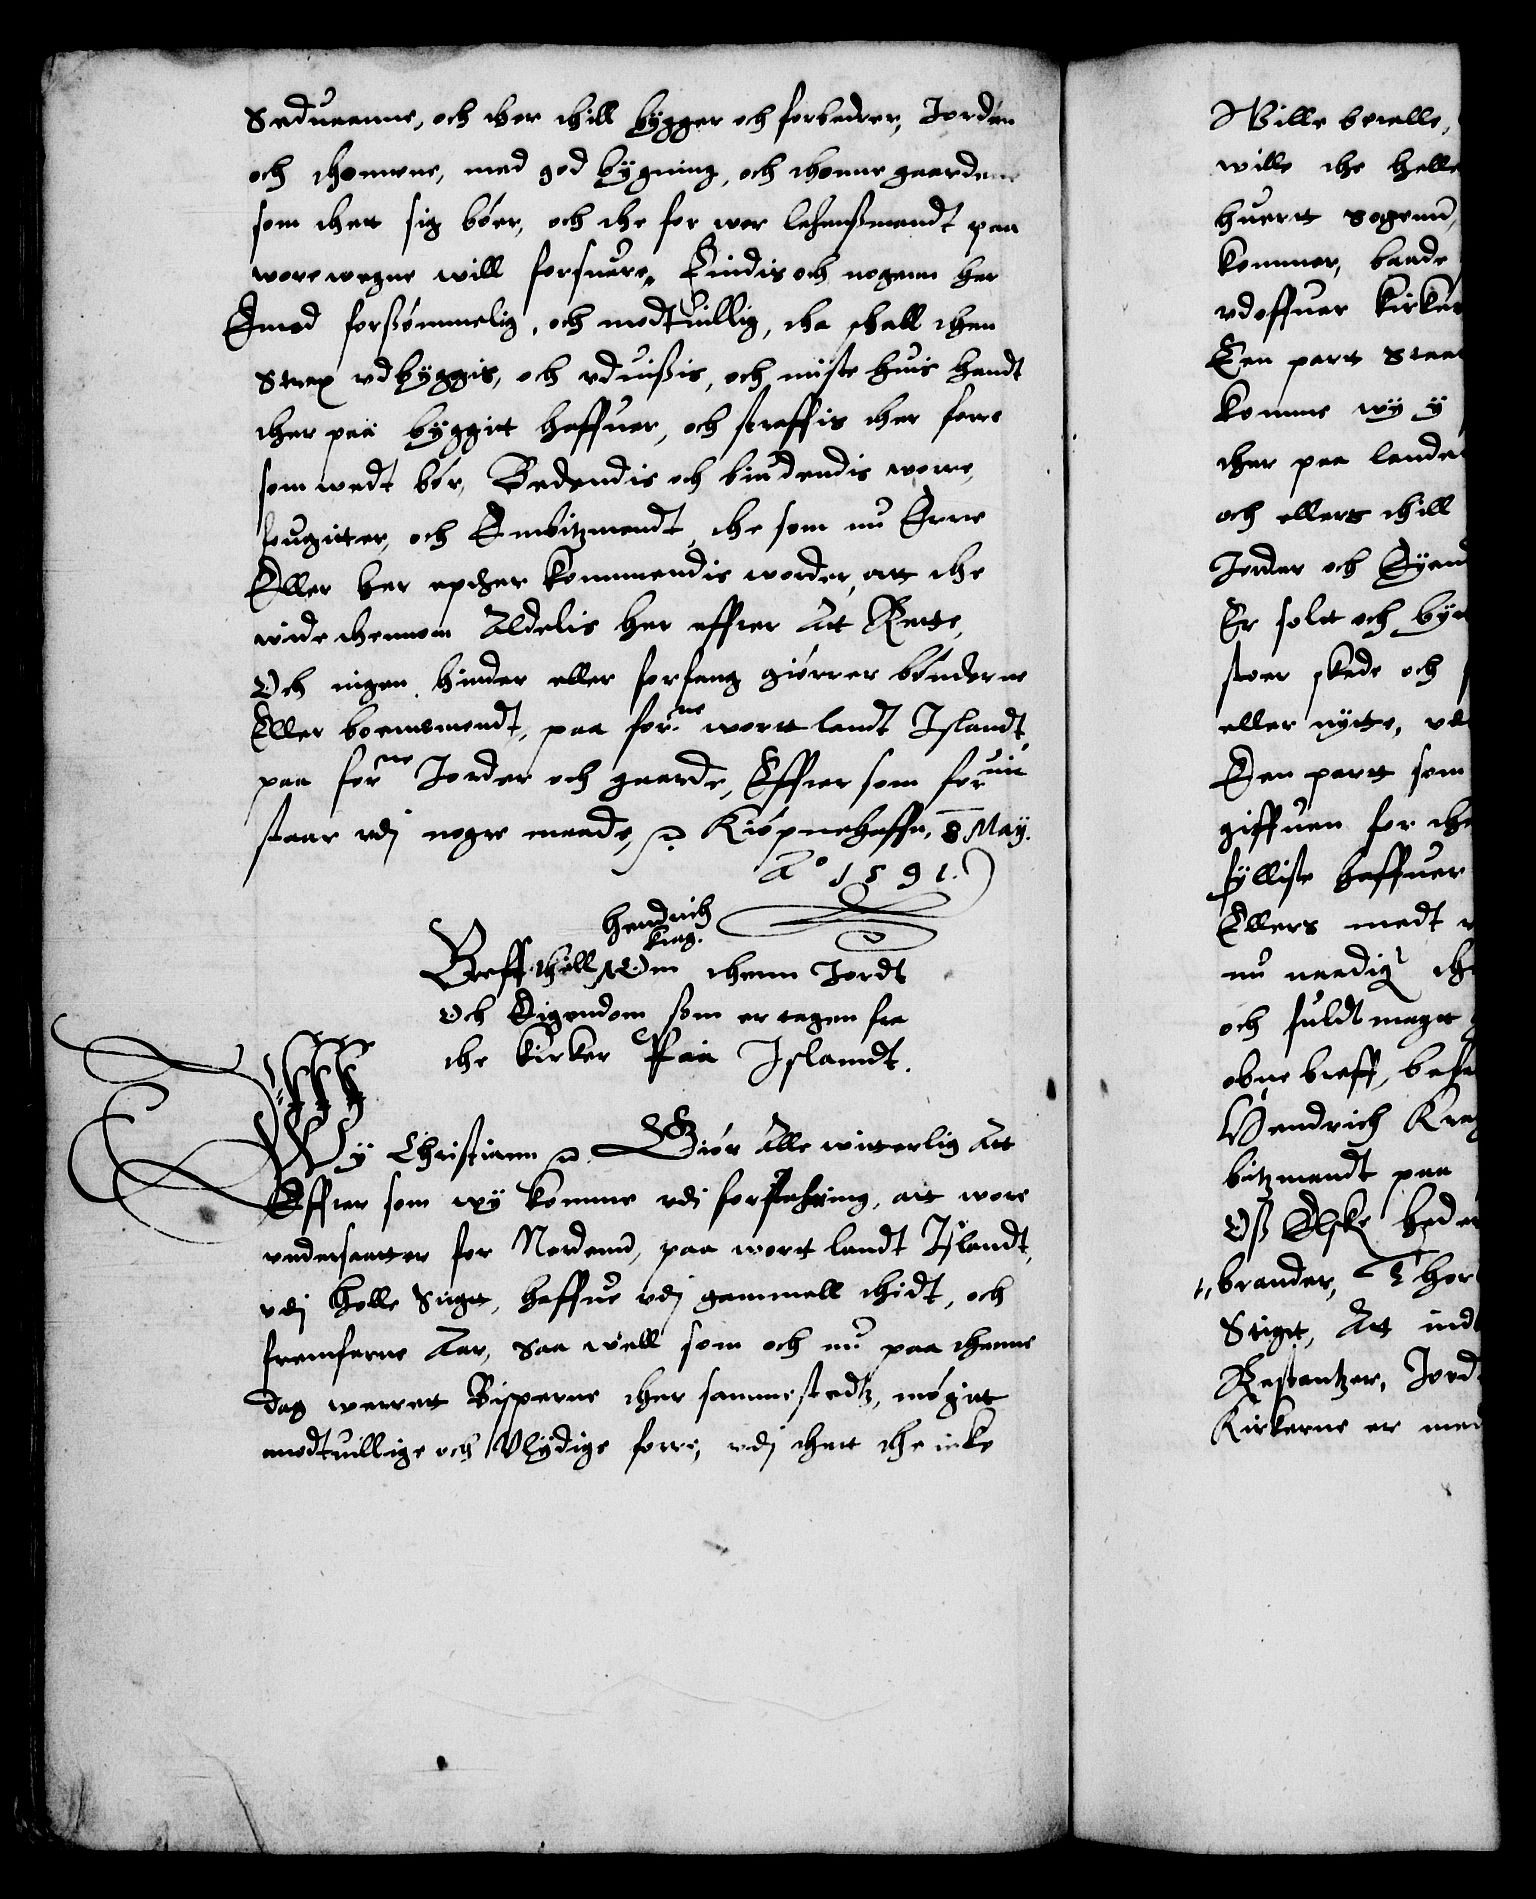 Seduaanne, och ther till bygger och forbedrer, Jorden
och thommene, med god bygning, och thenne gaardene
som thet sig bôer, och the for wor lehenßmandt paa
wore wegne will forsuare, Findis och nogenn her
Emod forßômmelig, och modtuillig, tha skall then
Strax vdbyggis, och vduißis, och miste huis handt
ther paa byggitt haffuer, och straffis ther forre
som wedt bôr, Bedendis och biudendis worre,
fougitter, och Embitzmendt, the som nu Erre
Eller her epther kommendis worder, att the
wide thennom Aldelis her effter Att Rette,
Och ingen hinder eller forfang giôrrer bônderne
Eller boemendt, paa forne wortt landt Islandt,
paa forne Jorder och gaarde, Effter som foruit
staar vdj nogre maade, Kiôpnehaffn, 8 May.
Ao 1591.
Hendrich
Krag.
Breff thill Om thenn Jordt
Och Eigendom som er tagen fra
the kirker Paa Islanndt.
Wy Christiann Giôr Alle witterlig Att
Effter som wy komme vdi forfahring, att wore
vndersaatter for Nordenn, paa wortt landt Islandt,
vdj Holle Stigt, haffue vdj gammell thidt, och
fremfarne Aar, Saa well som och nu paa thenne
dag werrett Bisperne ther sammestedtz, môgitt
modtuillige och Vlydige forre, vdj thett the icke
Wille betalle,
wille the helle
huertt sogenn,
kommer, baade
vdoffuer kirken
Een partt staa
komme wy y
ther paa lande
och ellers thill
Jorder och Eyend
Er solt och byt
stoer skede och
eller nytte, vd
Den partt som
giffuen for the
fylliste haffuer
Ellers medt
nu naadig th
och fuldt magtt
obne breff, befa
Hendrich Krag
bitzmandt paa
Oß Elske heder
brander, Thor
Stigtt, Att ind
Restantzer, Jord
Kirkerne er med